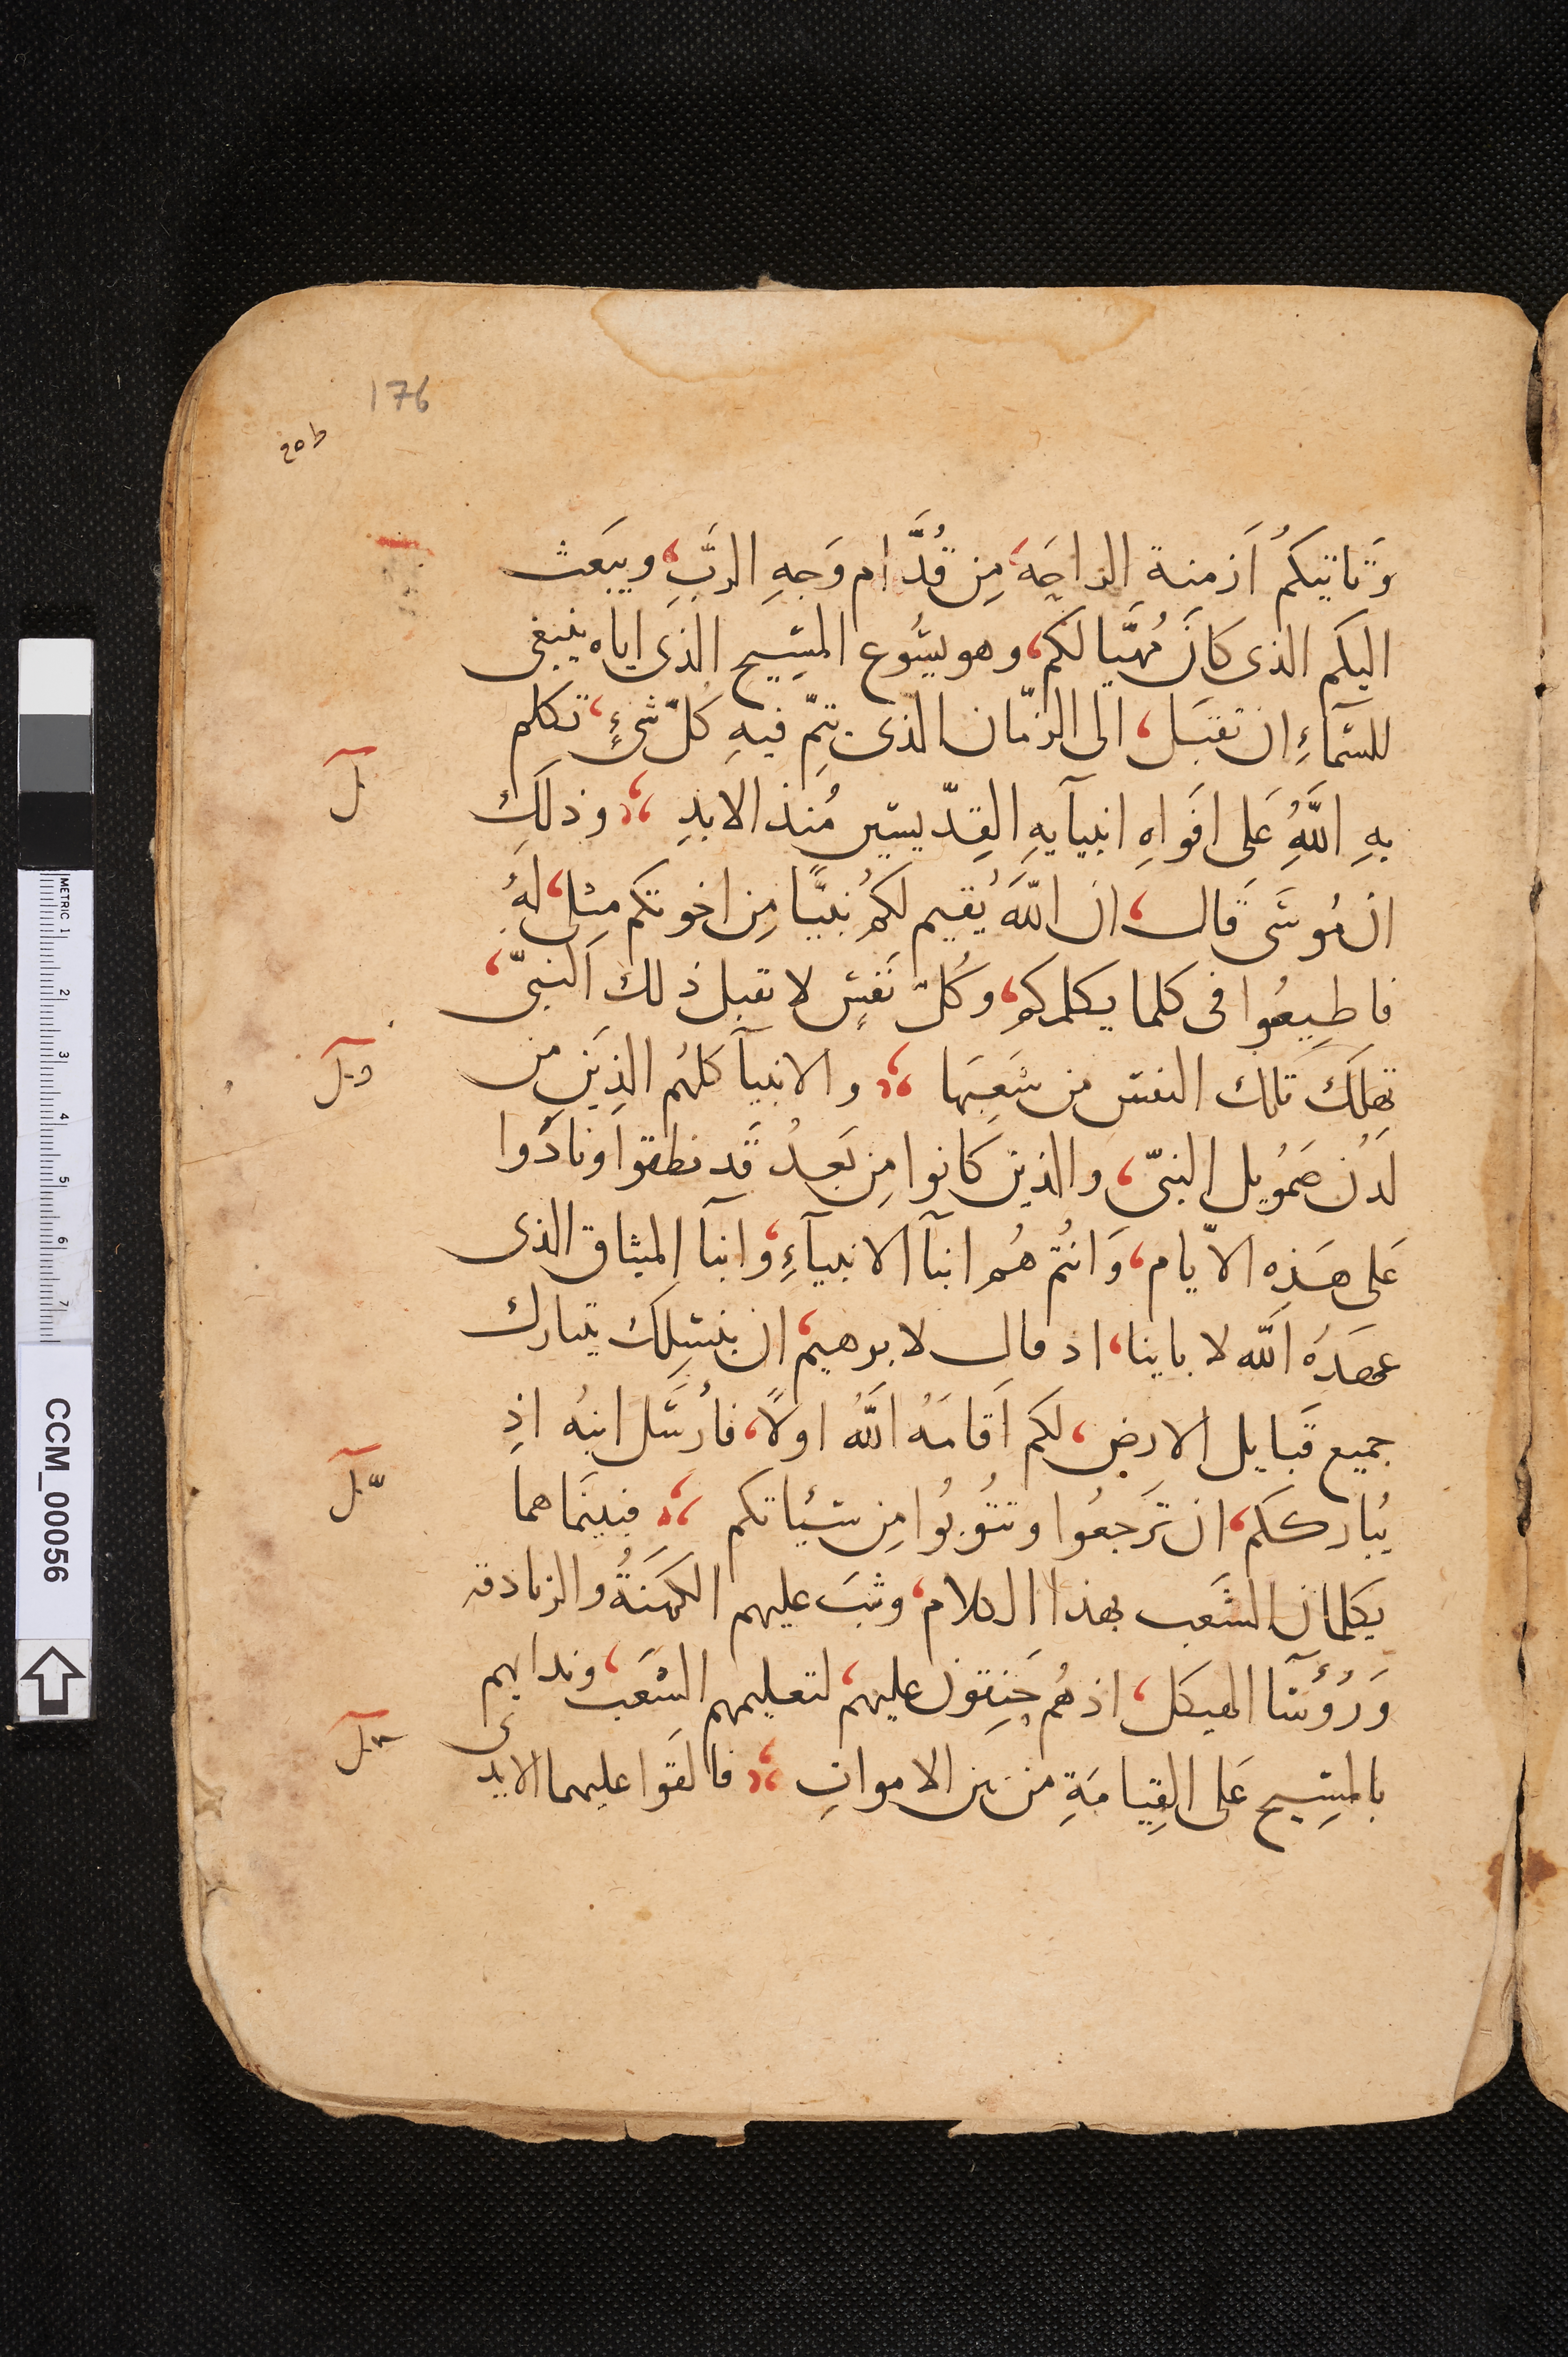 176
وَتاتيكُم اَزمنة الراحَة، مِن قُدَّام وَجهِ الرَّبِ، ويبَعَث
اليكَم الذى كانَ مُهيَّا لكَم، وهو يسُوع المسِيح الذى اياه ينبغى
للسَماءِ ان تقبَل، الى الزمّان الذى تتِمّ فيهِ كُلّ شىءٍ، تكلم
بهِ اللَّهُ عَلى افَواهِ انبيآيهِ القِدّيسين مُنذ الابدِ وذلَك
ان مُوسَى قَال، ان اللَّهَ يُقيم لكُم نبيًّا مِن اخوتكم مِثلى، لهُ
فاطِيعُوا فى كلما يكلمكم، وكُلّ نَفسٍ لا تقبل ذلك النبىّ،
تهلَك تلك النفس من شَعبِهَا والانبيآ كلهُم الذِيَن من
لَدُن صَمُويل النبىّ، والذين كانوا مِن بَعدُ قَد نطقوا ونادُوا
عَلى هَذِه الايّام، وَانتُم هُم ابنآ الانبيآءِ، وابنآ الميثاق الذى
عهدَهُ اللَّه لاباينا، اذ قال لابرهيم، ان بنسِلَك يتبارك
جميع قَبايل الارض، لكَم اَقامَهُ اللَّهُ اولاً، فارُسَل ابنهُ اذِ
يُباركَكم، ان تَرجعُوا وتتُوبُوا مِن سَئياتكم فبينَما هما
يكلمان الشَعب بهذا الكلام، وثبَ عليهم الكَهنَةُ والزنادقه
وَرُؤسَآ الهيكل، اذ هُم حَنِقون عليهم، لتعليمهم الشَعَب، وندايهم
بالمسِيح عَلى القِيامَةِ من بين الاموات فالقَوا عليهما الايدى
METRIC 1 2 3 4 5 6 7
CCM_00056